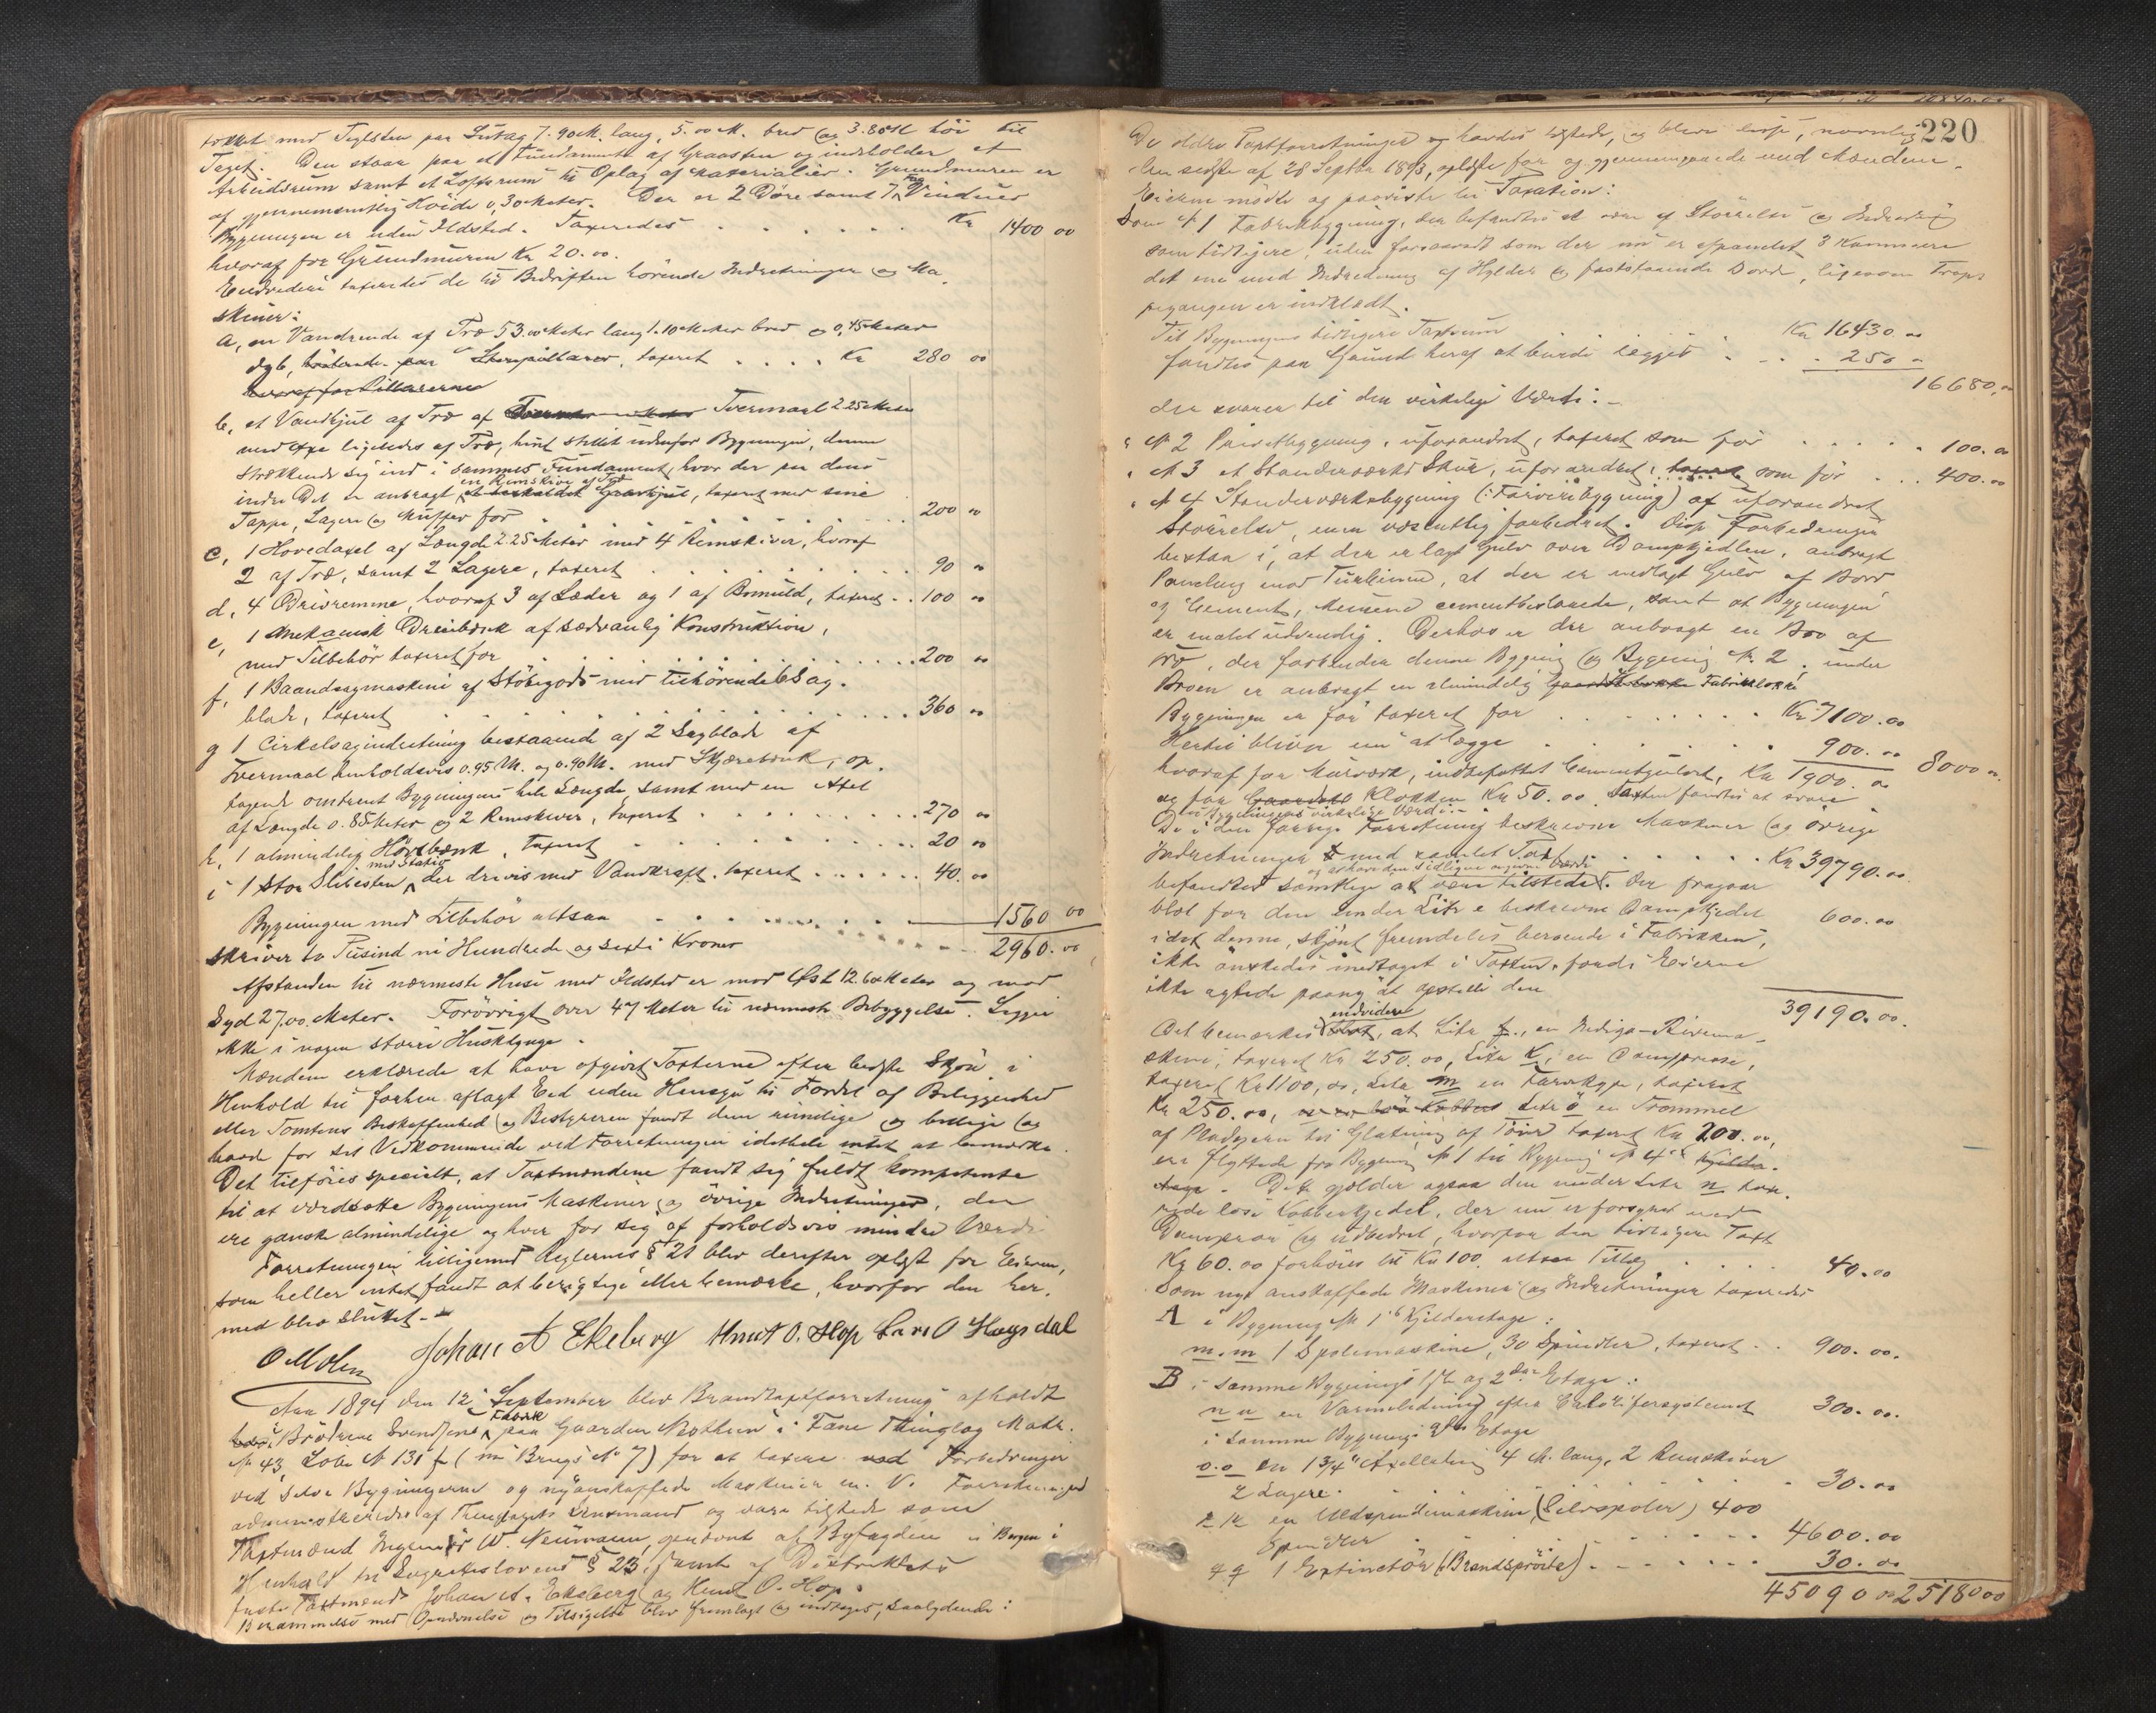 tækket med Teglsten paa Sutag 7.90 M. lang, 5.00 M. bred og 3.80 M höi til
Taget. Den staar paa et Fundament af Graasten og indeholder et
Arbeidsrum samt et Loftsrum til Oplag af Materialier. Grundmuren er
af gjennemsnitlig Höide 0,30 Meter. Der er 2 Döre samt 7 Fag Vinduer
Bygningen er uden Ildsted. Taxeredes . . . . . Kr 1400 00
hvoraf for Grundmuren Kr 20.00.
Endvidere taxeredes de til Bedriften hörende Indretninger og Ma-
skiner:
a, en Vandrende af Træ 53.00 Meter lang 1.10 Meter bred og 0,45 Meter
dyb, taxeret . . . . Kr 280 00
hvoraf for Pillarerne
b, et Vandhjul af Træ af Tvermaal 2.25 Meter
med Axe ligeledes af Træ, hint stillet udenfor Bygningen, denne
strækkende sig ind i sammes Fundament, hvor der paa dens
en Remskive af Træ
indre Del er anbragt et saakaldet , taxeret med sine
Tappe, Lagere og Muffer for . . . . . 200 00
c, 1 Hovedaxel af Længde 2.25 Meter med 4 Remskiver, hvoraf
2 af Træ, samt 2 Lagere, taxeret . . . . . 90 00
d, 4 Drivremme, hvoraf 3 af Læder og 1 af Bomuld, taxeret . . 100 00
e, 1 Mekanisk Dreiebænk af sædvanlig Konstruktion,
med Tilbehör taxeret for . . . . . 200 00
f, 1 Baandsagmaskine af Stöbegods med tilhörende 6 Sag-
blade, taxeret . . . . . 360 00
g 1 Cirkelsagindretning bestaaende af 2 Sagblade af
Tvermaal henholdsvis 0.95 M. og 0.90 M. med Skjærebænk, op-
tagende omtrent Bygningens hele Længde samt med en Axel
af Længde 0.85 Meter og 2 Remskiver, taxeret . . . . . 270 00
h, 1 almindelig Hövlbænk, taxeret . . . . . 20 00
med Stativ
i 1 stor Slibesten, der drives med Vandkraft, taxeret . . . . . 40.00
Bygningen med Tilbehör altsaa . . . . . 1560 00
skriver to Tusind ni Hundrede og sexti Kroner . . . . . 2960.00
Afstanden til nærmeste Huse med Ildsted er mod Öst 12.60 Meter og mod
Syd 27.00 Meter. Forövrigt over 47 Meter til nærmeste Bebyggelse. Ligger
ikke i nogen större Husklynge.
Mændene erklærede at have afgivet Taxterne efter bedste Skjön i
Henhold til forhen aflagt Eed uden Hensyn til Fordel af Beliggenhed
eller Tomtens Beskaffenhed og Bestyreren fandt dem rimelige og billige og
havde for sit Vedkommende ved Forretningen idethele intet at bemærke.
Det tilföres specielt, at Taxtmændene fandt sig fuldt kompetente
til at værdsætte Bygningens Maskiner og övrige Indretninger, der
ere ganske almindelige og hver for sig af forholdsvis mindre Værdi.
Forretningen tilligemed Reglernes § 21 blev derefter oplæst for Eieren,
som heller intet fandt at berigtige eller bemærke, hvorfor den her-
med blev sluttet.—
O Molin Johan A Ekeberg Knut O. Hop Lars O Haugsdal
Aar 1894 den 12 September blev Brandtaxtforretning afholdt
Fabrik
Brödrene Svendsens paa Gaarden Nesttun i Fane Thinglag Matr.
No 43 Löbe No 131 f (nu Brugs No 7) for at taxere Forbedringer
ved selve Bygningerne og nyanskaffede Maskiner m. V. Forretningen
administreredes af Thinglagets Lensmand og vare tilstede som
Taxtmænd Ingeniör W. Neumann, opnævnt af Byfogden i Bergen i
Henhold til Lovens § 23, samt af Distriktets
faste Taxtmænd Johan A. Ekeberg og Knut O. Hop.
Berammelse med Opnævnelse og Tilsigelse blev fremlagt og indtages, saalydende:
220
De ældre Taxtforretninger havdes tilstede, og bleve disse, navnlig
den sidste af 28 Septbr 1893, oplæste for og gjennemgaaede med Mændene.
Eierne mödte og paaviste til Taxation:
Som No 1 Fabrikbygning, der befandtes at være af Störrelse og Indredning
som tidligere, uden forsaavidt som der nu er afpanelet 3 Kammere
det ene med Indredning af Hylder og faststaaende Borde, ligesom Trap-
pegangen er indklædt.
Til Bygningens tidligere Taxtsum . . . . . Kr 16430.00
fandtes paa Grund heraf at burde lægges . . . 250 „
16680,00
der svarer til den virkelige Værdi:—
„ No 2 Privetbygning, uforandret, taxeret som för . . . . . 100.00
„ No 3 et Standerværks Skur, uforandret, taxeret som för . . . 400.00
„ No 4 Standerværksbygning (: Farveribygning) af uforandret
Störrelse, men væsentlig forbedret. Disse Forbedringer
bestaa i, at der er lagt Gulv over Dampkjedlen, anbragt
Paneling mod Turbinen, at der er nedlagt Gulv af Bord
og Cement, Murene cementbeströgede, samt at Bygningen
er malet udvendig. Derhos er der anbragt en Bro af
Træ, der forbinder denne Bygning og Bygning No 2, under
Broen er anbragt en almindelig Fabrikklokke
Bygningen er för taxeret for . . . . . Kr 7100.00
Hertil bliver nu at lægge . . . . . 900.00
hvoraf for Murværk, indbefattet Cementgulvet, Kr 1900.00 8000 „
og for Klokken Kr 50.00. Taxten fandtes at svare
til Bygningens virkelige Værdi.—
De i den forrige Forretning beskrevne Maskiner og övrige
Indretninger med samlet Taxt . . . . . Kr 39790.00
og at have den tidligere angivne Værdi
befandtes samtlige at være tilstede. Der fragaar
blot for den under Litr e beskrevne Dampkjedel 600.00
idet denne, skjönt fremdeles beroende i Fabrikken,
ikke önskedes medtaget i Taxten, fordi Eierne
ikke agtede paany at opstille den
39190.00.
endvidere
Det bemærkes, at Litr f., en Indigo-Rivema-
skine, taxeret Kr 250.00, Litr k, en Damppresse,
taxeret Kr 1100,00, Litr m en Farvekype, taxeret
Kr 250.00, Litr ö en Trommel
af Pladejern til Glatning af Töier taxeret Kr 200.00,
ere flyttede fra Bygning No 1 til Bygning No 4
. Det gjælder ogsaa den under Litr n taxe-
rede löse Kobberkjedel, der nu er forsynet med
Damprör og udbedret, hvorfor den tidligere Taxt
Kr 60.00 forhöies til Kr 100 altsaa Tillæg . . . . 40.00
Som nye anskaffede Maskiner og Indretninger taxeredes
A i Bygning No 1's Kjelderetage:
m.m 1 Spolemaskine, 30 Spindler, taxeret . . 900.00.
B i samme Bygnings 1ste og 2den Etage:
n n en Varmeledning efter Caloriferesystemet 300.00.
i samme Bygnings Etage
o.o en 1 3/4" Axelledning 4 M. lang, 2 Remskiver
2 Lagere . . 30.00
en Uldspindemaskine (Selvspoler) 400
Spindler . . . . . 4600.00
q q 1 Extinctör (: Brandspröite) . . . . . 30.00
45090 00 25180 00